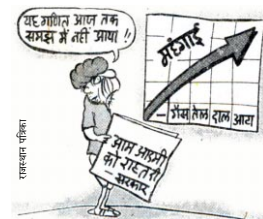 यह गणित आज तक
समझ में नहीं आया !!
महंगाई
गैस तेल दाल आटा
आम आदमी
को राहत दी
- सरकार
राजस्थान पत्रिका